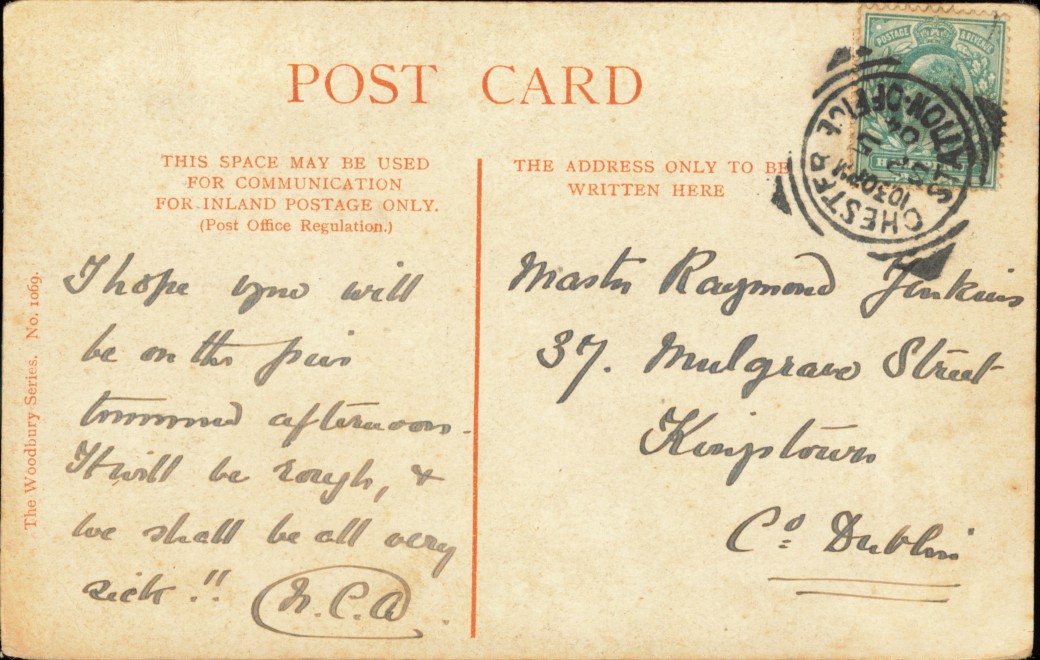 POST CARD
THIS SPACE MAY BE USED
FOR COMMUNICATION
FOR INLAND POSTAGE ONLY.
(Post Office Regulation.)
THE ADDRESS ONLY TO BE
WRITTEN HERE
POSTAGE & REVENUE
CHESTER STATION·OFFICE
10.30PM
SP
04
The Woodbury Series. No. 1069.
I hope you will
be on the pier
tomorrow afternoon.
It will be rough, &
we shall be all very
sick!!
Master Raymond Jenkins
37. Mulgrave Street
Kingstown
Co. Dublin